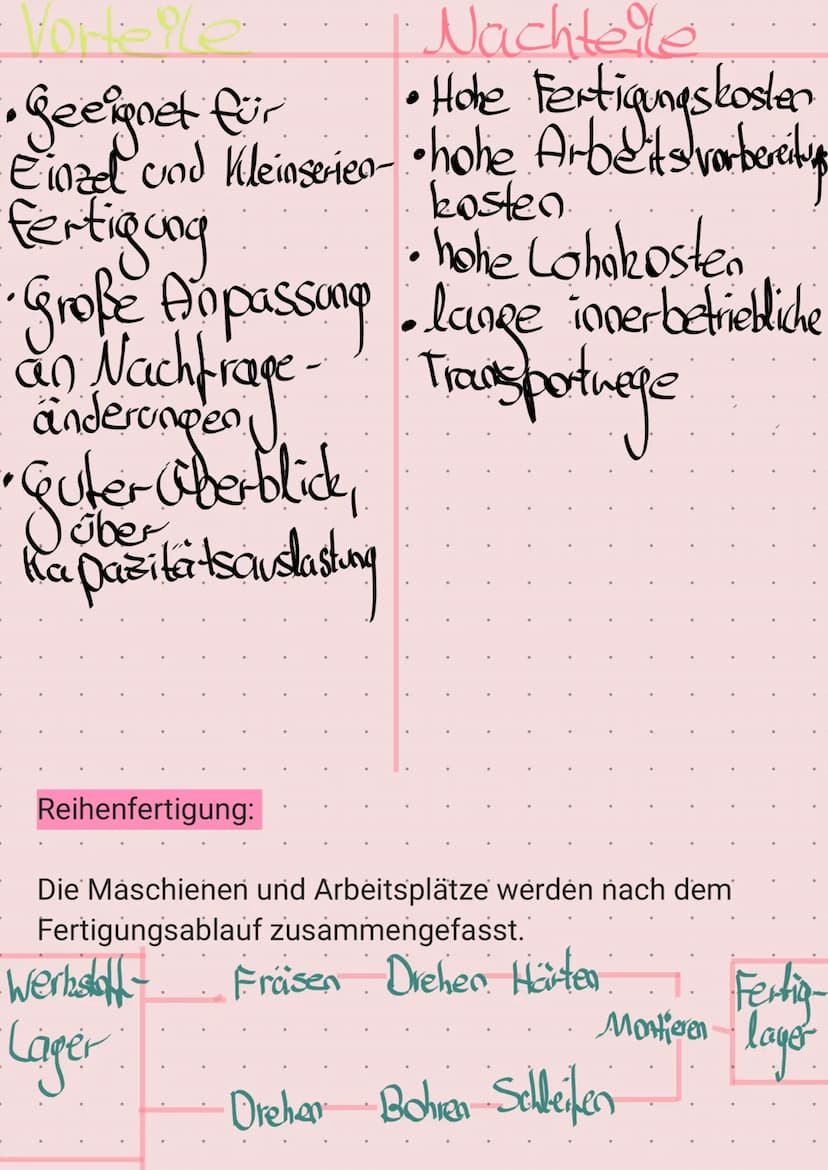 Vorteile
• Geeignet für
Einzel und Kleinserien-
fertigung
• Große Anpassung
an Nachfrage-
änderungen
• Guter Überblick,
über
Kapazitätsauslastung
Nachteile
• Hohe Fertigungskosten
• hohe Arbeitsvorbereitungs
kosten
• hohe Lohnkosten
• lange innerbetriebliche
Transportwege
Reihenfertigung:
Die Maschienen und Arbeitsplätze werden nach dem
Fertigungsablauf zusammengefasst.
Werkstoff-
Lager
Fräsen Drehen Härten
Drehen Bohren Schleifen
Montieren
Fertig-
lager